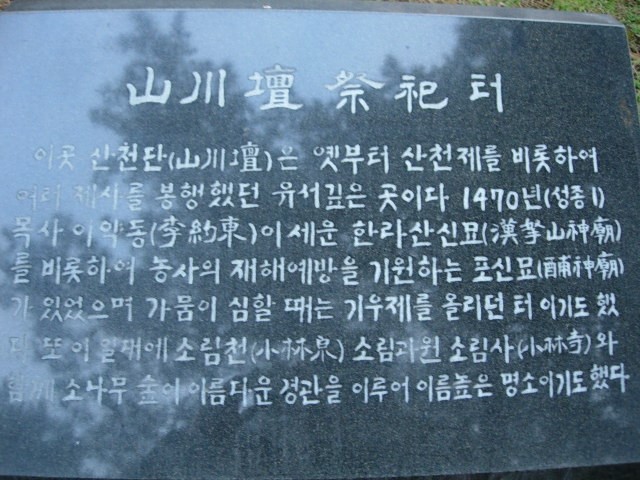 山川壇 祭祀 터
이곳 산천단(山川壇)은 옛부터 산천제를 비롯하여
여러 제사를 봉행했던 유서깊은 곳이다 1470년(성종1)
목사 이약동(李約東)이 세운 한라산신묘(漢拏山神廟)
를 비롯하여 농사의 재해예방을 기원하는 포신묘(酺神廟)
가 있었으며 가뭄이 심할 때는 기우제를 올리던 터 이기도 했
다 또 이 일대에 소림천(小林泉) 소림과원 소림사(小林寺)와
함께 소나무 숲이 아름다운 경관을 이루어 이름높은 명소이기도했다